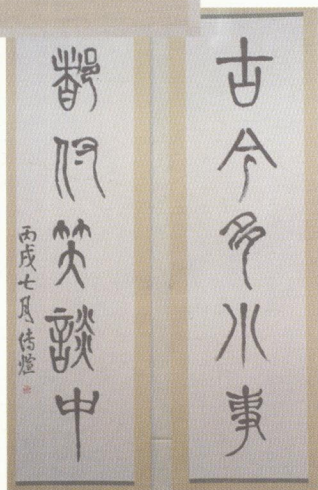 古今多少事
都付笑談中
丙戌七月